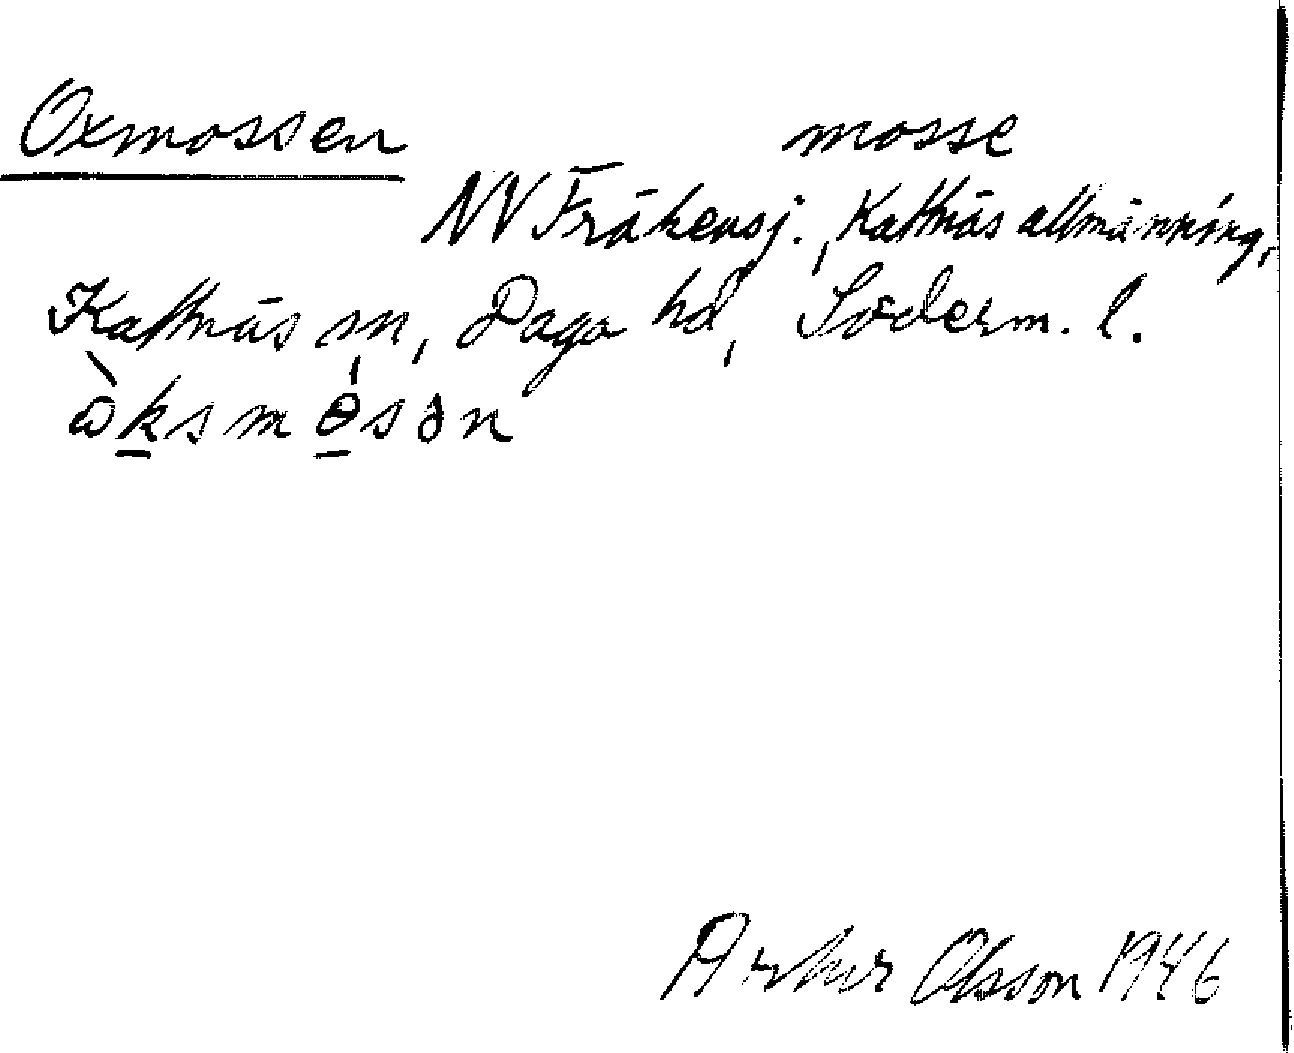 Oxmossen mosse
NV Fräkensj., Kattnäs allmänning,
Kattnäs sn, Daga hd, Söderm. l.
ὼksmɵ́sən
Arthur Olsson 1946